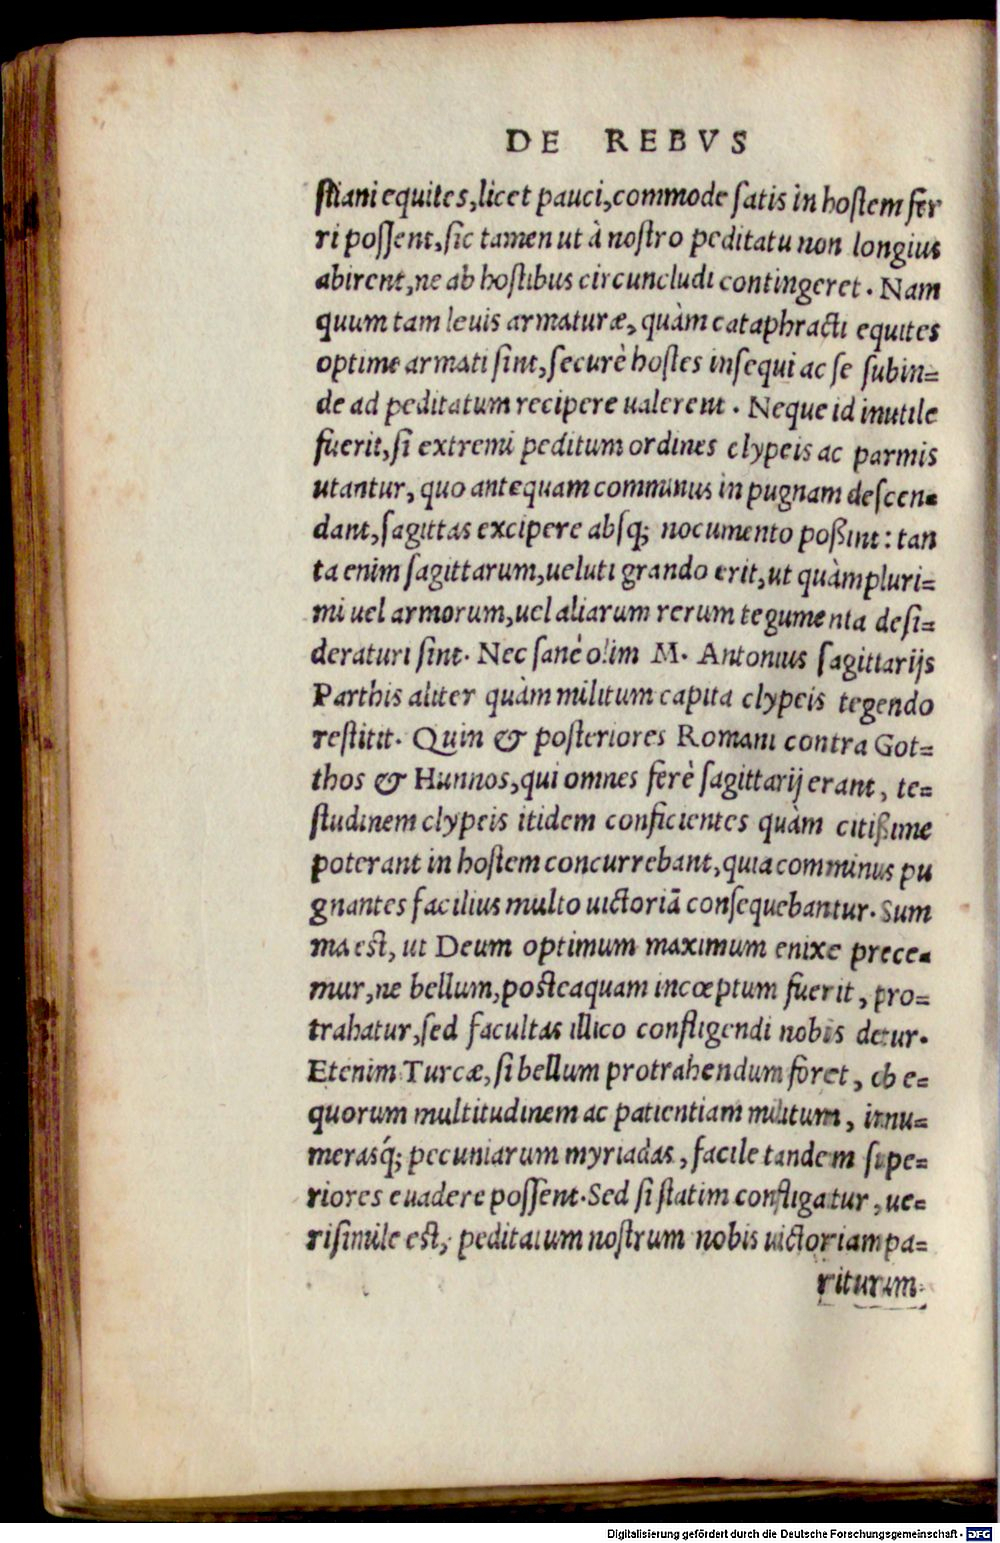 DE REBVS
ſtiani equites, licet pauci, commode ſatis in hoſtem fer
ri poſſent, ſic tamen ut à noſtro peditatu non longius
abirent, ne ab hoſtibus circuncludi contingeret. Nam
quum tam leuis armaturæ, quàm cataphracti equites
optime armati ſint, ſecurè hoſtes inſequi ac ſe ſubin=
de ad peditatum recipere ualerent. Neque id inutile
fuerit, ſi extremi peditum ordines clypeis ac parmis
utantur, quo antequam comminus in pugnam deſcen=
dant, ſagittas excipere abſq; nocumento poßint: tan
ta enim ſagittarum, ueluti grando erit, ut quàmpluri=
mi uel armorum, uel aliarum rerum tegumenta deſi=
deraturi ſint. Nec ſanè olim M. Antonius ſagittarijs
Parthis aliter quàm militum capita clypeis tegendo
reſtitit. Quin & poſteriores Romani contra Got=
thos & Hunnos, qui omnes ferè ſagittarij erant, te=
ſtudinem clypeis itidem conficientes quàm citißime
poterant in hoſtem concurrebant, quia comminus pu
gnantes facilius multo uictoriā conſequebantur. Sum
ma eſt, ut Deum optimum maximum enixe prece=
mur, ne bellum, poſteaquam incœptum fuerit, pro=
trahatur, ſed facultas illico confligendi nobis detur.
Etenim Turcæ, ſi bellum protrahendum foret, ob e=
quorum multitudinem ac patientiam militum, innu=
merasq́; pecuniarum myriadas, facile tandem ſupe=
riores euadere poſſent. Sed ſi ſtatim confligatur, ue=
riſimile eſt, peditatum noſtrum nobis uictoriam pa=
rituram
Digitalisierung gefördert durch die Deutsche Forschungsgemeinschaft - DFG